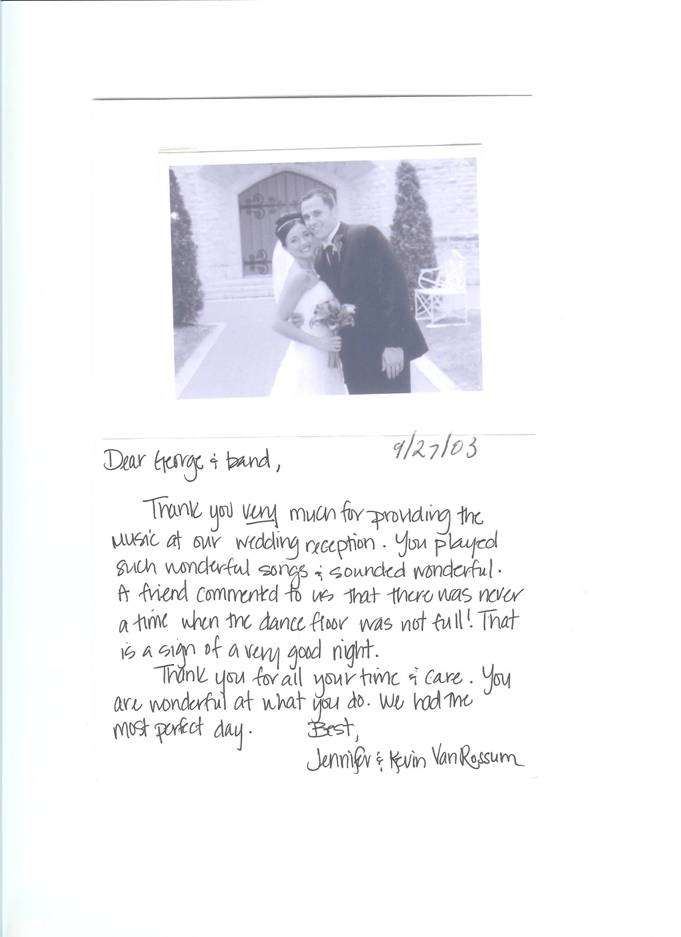 9/27/03
Dear George & band,
Thank you very much for providing the
music at our wedding reception. You played
such wonderful songs & sounded wonderful.
A friend commented to us that there was never
a time when the dance floor was not full! That
is a sign of a very good night.
Thank you for all your time & care. You
are wonderful at what you do. We had the
most perfect day.
Best,
Jennifer & Kevin VanRossum